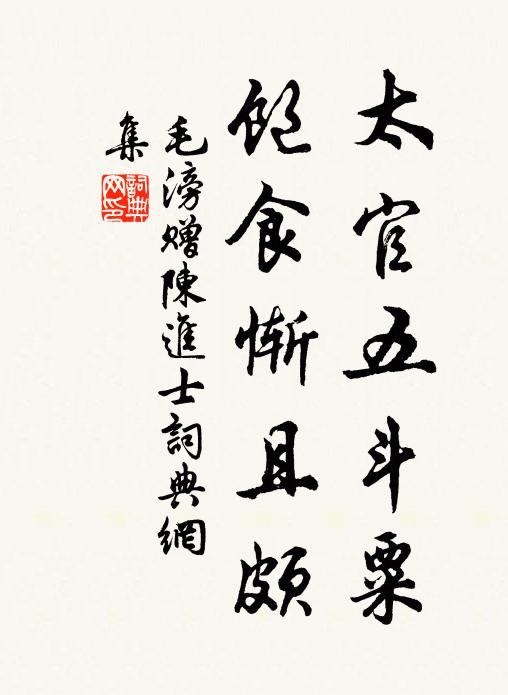 太官五斗粟
飽食慚且頗
毛滂贈陳進士詞典網
集
詞典网印